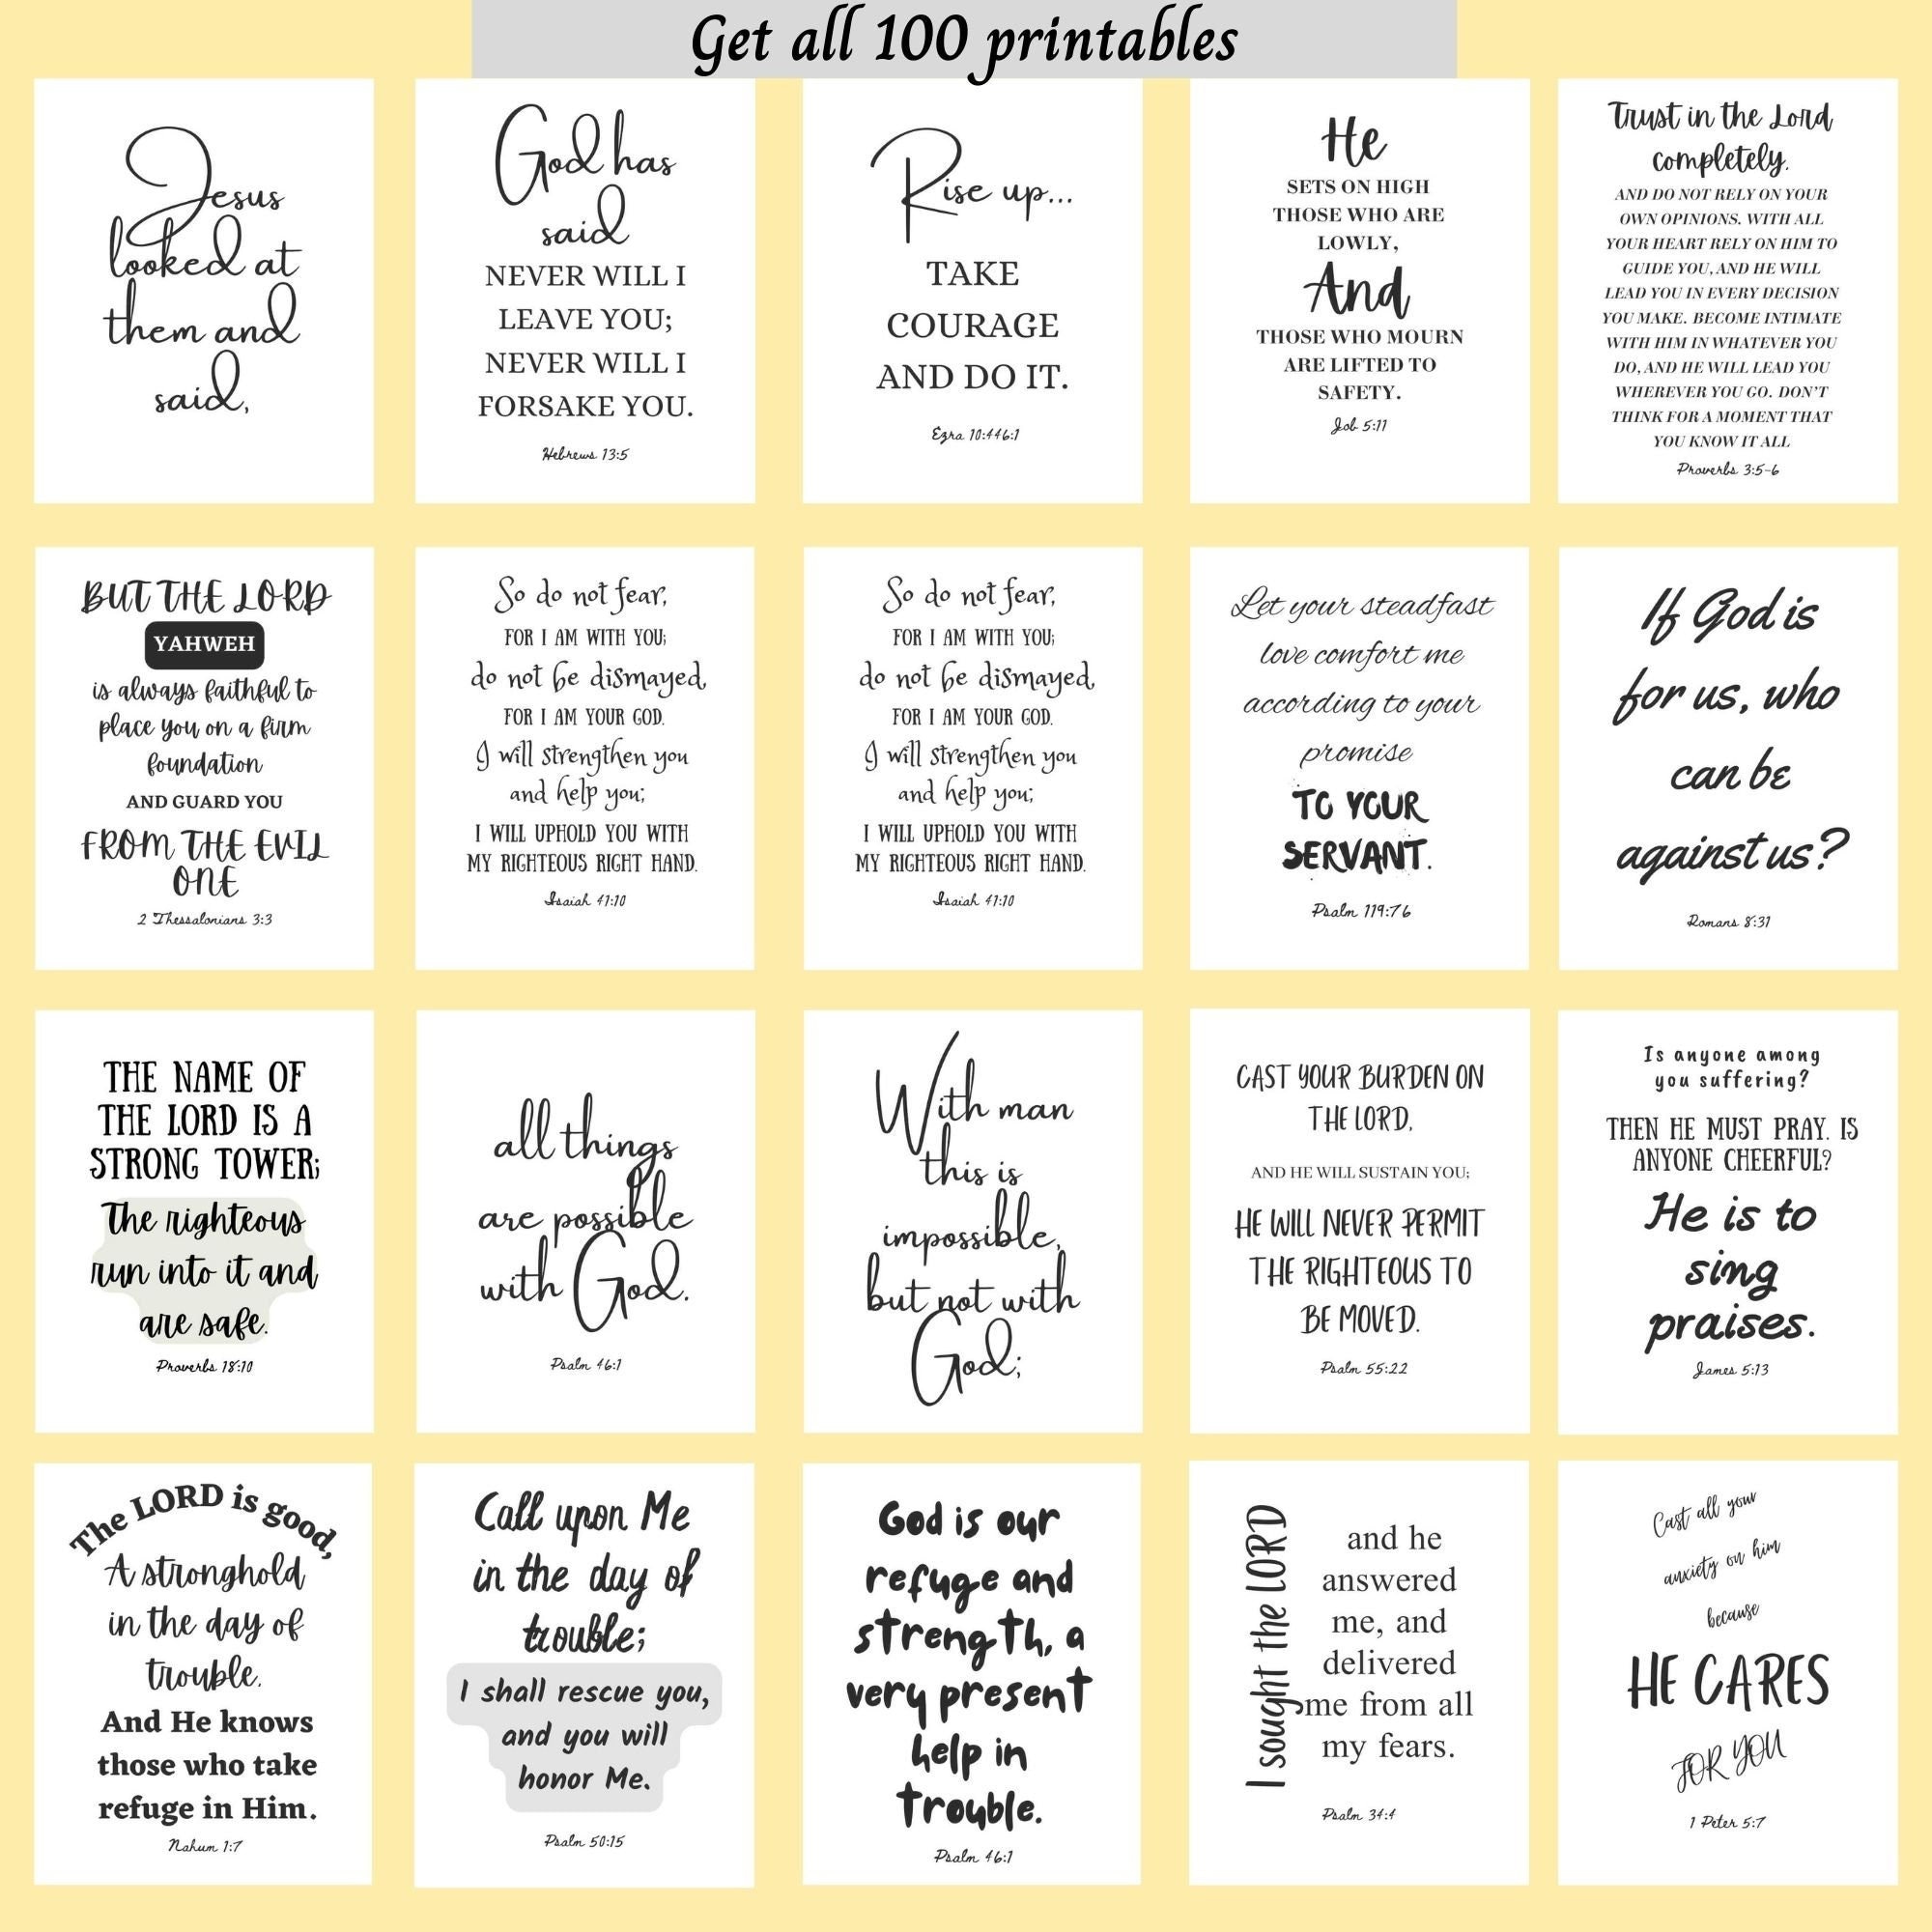 Get all 100 printables
Jesus
looked at
them and
said,
God has
said
NEVER WILL I
LEAVE YOU;
NEVER WILL I
FORSAKE YOU.
Hebrews 13:5
Rise up...
TAKE
COURAGE
AND DO IT.
Ezra 10:446:1
He
SETS ON HIGH
THOSE WHO ARE
LOWLY,
And
THOSE WHO MOURN
ARE LIFTED TO
SAFETY.
Job 5:11
Trust in the Lord
completely.
AND DO NOT RELY ON YOUR
OWN OPINIONS. WITH ALL
YOUR HEART RELY ON HIM TO
GUIDE YOU, AND HE WILL
LEAD YOU IN EVERY DECISION
YOU MAKE. BECOME INTIMATE
WITH HIM IN WHATEVER YOU
DO, AND HE WILL LEAD YOU
WHEREVER YOU GO. DON'T
THINK FOR A MOMENT THAT
YOU KNOW IT ALL
Proverbs 3:5-6
BUT THE LORD
YAHWEH
is always faithful to
place you on a firm
foundation
AND GUARD YOU
FROM THE EVIL
ONE
2 Thessalonians 3:3
So do not fear,
FOR I AM WITH YOU;
do not be dismayed,
FOR I AM YOUR GOD.
I will strengthen you
and help you;
I WILL UPHOLD YOU WITH
MY RIGHTEOUS RIGHT HAND.
Isaiah 41:10
So do not fear,
FOR I AM WITH YOU;
do not be dismayed,
FOR I AM YOUR GOD.
I will strengthen you
and help you;
I WILL UPHOLD YOU WITH
MY RIGHTEOUS RIGHT HAND.
Isaiah 41:10
Let your steadfast
love comfort me
according to your
promise
TO YOUR
SERVANT.
Psalm 119:76
If God is
for us, who
can be
against us?
Romans 8:31
THE NAME OF
THE LORD IS A
STRONG TOWER;
The righteous
run into it and
are safe.
Proverbs 18:10
all things
are possible
with God.
Psalm 46:1
With man
this is
impossible,
but not with
God;
CAST YOUR BURDEN ON
THE LORD,
AND HE WILL SUSTAIN YOU;
HE WILL NEVER PERMIT
THE RIGHTEOUS TO
BE MOVED.
Psalm 55:22
Is anyone among
you suffering?
THEN HE MUST PRAY. IS
ANYONE CHEERFUL?
He is to
sing
praises.
James 5:13
The LORD is good,
A stronghold
in the day of
trouble.
And He knows
those who take
refuge in Him.
Nahum 1:7
Call upon Me
in the day of
trouble;
I shall rescue you,
and you will
honor Me.
Psalm 50:15
God is our
refuge and
strength, a
very present
help in
trouble.
Psalm 46:1
I sought the LORD
and he
answered
me, and
delivered
me from all
my fears.
Psalm 34:4
Cast all your
anxiety on him
because
HE CARES
FOR YOU
1 Peter 5:7